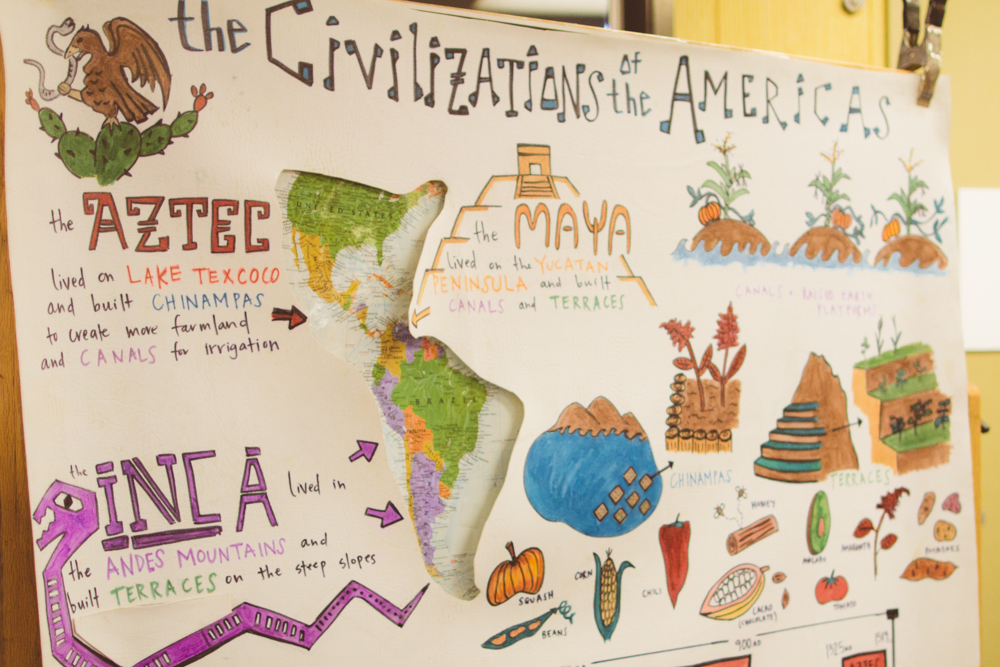 the Civilizations of the Americas
the AZTEC
lived on LAKE TEXCOCO
and built CHINAMPAS
to create more farmland
and CANALS for irrigation
UNITED STATES
BRAZIL
the MAYA
lived on the YUCATAN
PENINSULA and built
CANALS and TERRACES
CANALS + RAISED EARTH
PLATFORMS
CHINAMPAS
TERRACES
the INCA lived in
the ANDES MOUNTAINS and
built TERRACES on the steep slopes
SQUASH
BEANS
CORN
CHILI
HONEY
CACAO
(CHOCOLATE)
AVOCADO
TOMATO
AMARANTH
POTATOES
900 AD
1325
1519
AZTEC